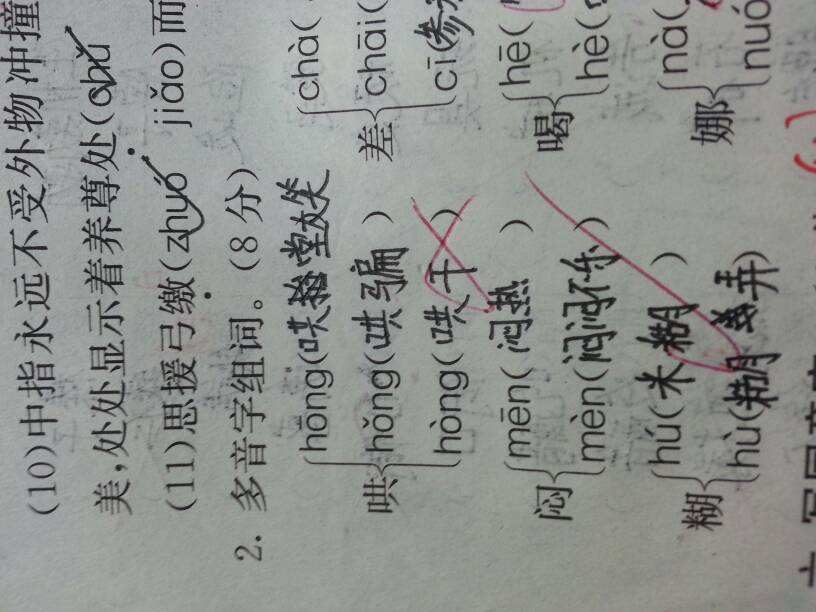 (10)中指永远不受外物冲撞
美,处处显示着养尊处(chǔ
(11)思援弓缴(zhuó jiǎo)而
2. 多音字组词。(8分)
hōng(哄堂大笑 chà(
哄 hǒng(哄骗) 差 chāi(
hòng(哄干) cī(参
mēn(闷热) hē(
闷 喝
mèn(闷闷不乐) hè(
hú(米糊) nà(
糊 娜
hù(糊弄) nuó